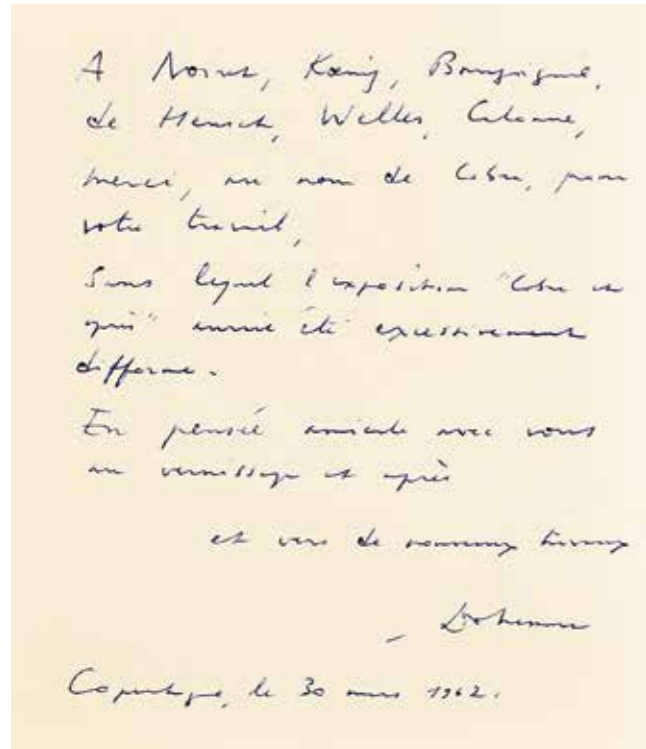 A Noiret, Kœnig, Bourgoignie,
de Heusch, Welles, Calonne,
merci, au nom de Cobra, pour
votre travail,
Sans lequel l'exposition "Cobra et
après" aurait été excessivement
difforme.
En pensée amicale avec vous
au vernissage et après
et vers de nouveaux travaux
_ Dotremont
Copenhague, le 30 mars 1962.